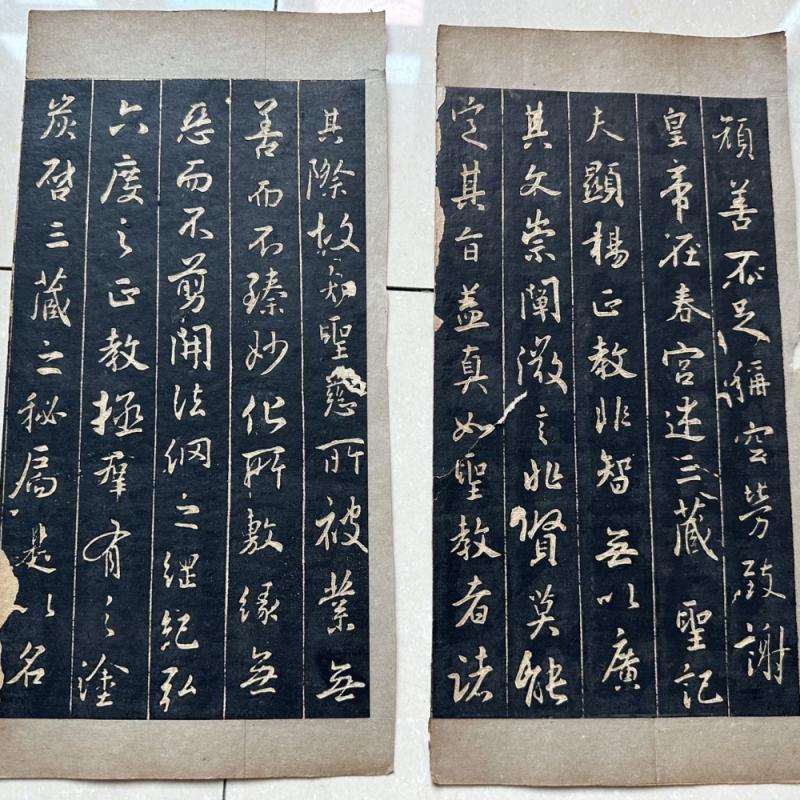 顏善不足稱空勞致謝
皇帝在春宮述三藏聖記
夫顯揚正教非智無以廣
其文崇闡微言非賢莫能
定其旨蓋真如聖教者諸
其際故知聖慈所被業無
善而不臻妙化所敷緣無
惡而不剪開法網之綱紀弘
六度之正教拯羣有之塗
炭啓三藏之秘扃是以名